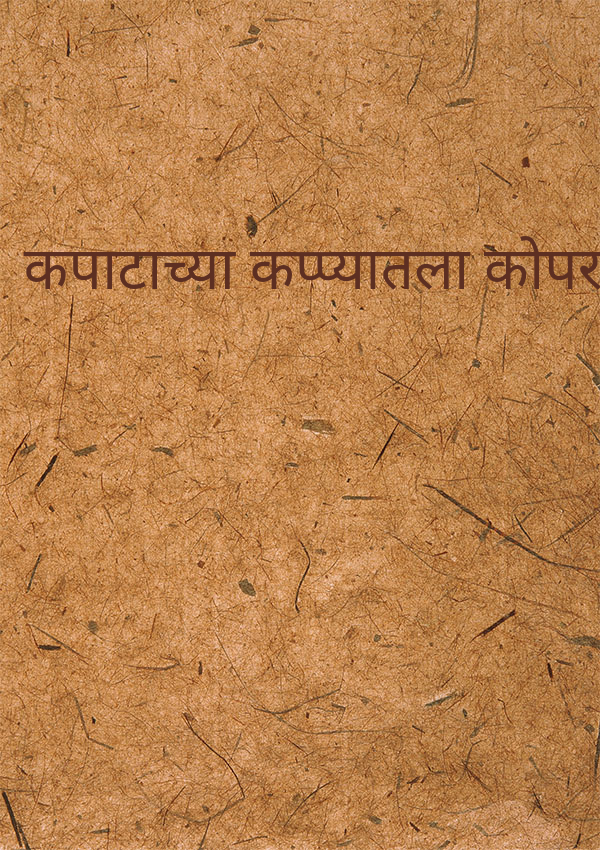 कपाटाच्या कप्प्यातला कोपर